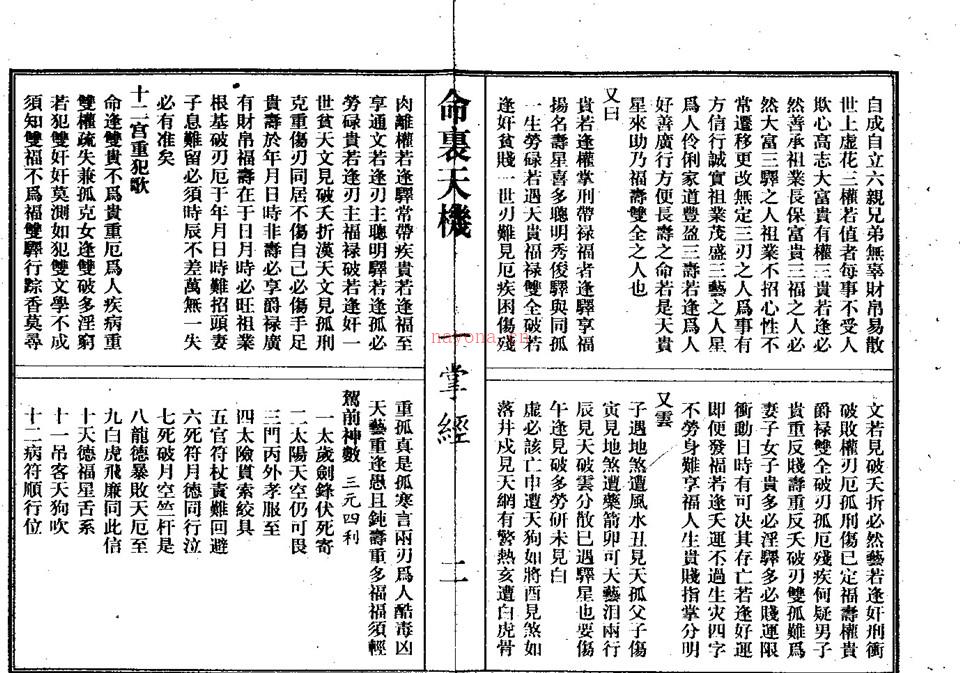 自成自立六親兄弟無辜財帛易散
世上虛花三權若值者每事不受人
欺心高志大富貴有權三貴若逢必
然善承祖業長保富貴三福之人必
然大富三驛之人祖業不招心性不
常遷移更改無定三刃之人爲事有
方信行誠實祖業茂盛三藝之人星
爲人伶俐家道豊盈三壽若逢爲人
好善廣行方便長壽之命若是天貴
星來助乃福壽雙全之人也
又曰
貴若逢權掌刑帶禄福者逢驛享福
揚名壽星喜多聰明秀俊驛與同孤
一生勞碌若遇天貴福禄雙全破若
逢奸貧賤一世刃難見厄疾困傷殘
文若見破夭折必然藝若逢奸刑衝
破敗權刃厄孤刑傷已定福壽權貴
爵禄雙全破刃孤厄殘疾何疑男子
貴重反賤壽重反夭破刃雙孤難爲
妻子女子貴多必淫驛多必賤運限
衝動日時有可决其存亡若逢好運
即便發福若逢夭運不過生灾四字
不勞身難享福人生貴賤指掌分明
又雲
子遇地煞遭風水丑見天孤父子傷
寅見地煞遭藥箭卯可天藝泪兩行
辰見天破雲分散巳遇驛星也要傷
午逢見破多勞研未見白
虛必該亡申遭天狗如將酉見煞如
落井戍見天網有警熱亥遭白虎骨
命裏天機
掌經
二
肉離權若逢驛常帶疾貴若逢福至
享通文若逢刃主聰明驛若逢孤必
勞碌貴若逢刃主福禄破若逢奸一
世貧天文見破夭折漢天文見孤刑
克重傷刃同居不傷自己必傷手足
貴壽於年月日時非壽必享爵禄廣
有財帛福壽在于日月時必旺祖業
根基破刃厄于年月日時難招頭妻
子息難留必須時辰不差萬無一失
必有准矣
十二宫重犯歌
命逢雙貴不爲貴重厄爲人疾病重
雙權疏失兼孤克女逢雙破多淫窮
若犯雙奸奸莫測如犯雙文學不成
須知雙福不爲福雙驛行踪香莫尋
重孤真是孤寒言兩刃爲人酷毒凶
天藝重逢愚且鈍壽重多福福須輕
駕前神數 三元四利
一太歲劍鋒伏死寄
二太陽天空仍可畏
三門丙外孝服至
四太險貫索絞具
五官符杖責難回避
六死符月德同行泣
七死破月空竺杆是
八龍德暴敗天厄至
九白虎飛廉同此信
十天德福星舌系
十一吊客天狗吹
十二病符順行位
nayona.cn